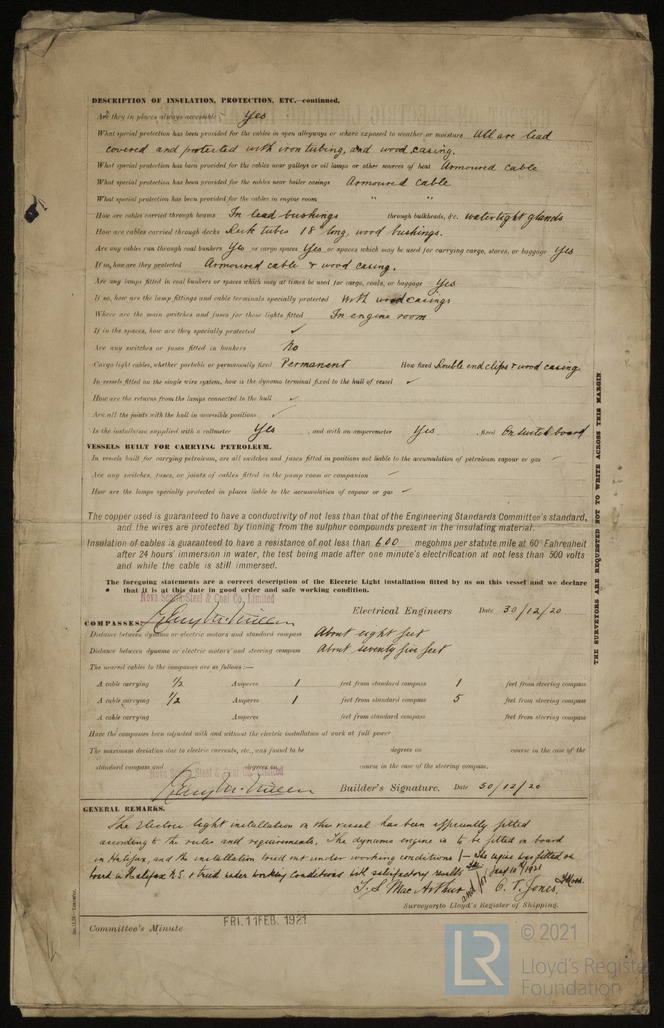 DESCRIPTION OF INSULATION, PROTECTION, ETC.—continued.
Are they in places always accessible Yes
What special protection has been provided for the cables in open alleyways or where exposed to weather or moisture All are lead
covered and protected with iron tubing, and wood casing.
What special protection has been provided for the cables near galleys or oil lamps or other sources of heat Armoured cable
What special protection has been provided for the cables near boiler casings Armoured cable
What special protection has been provided for the cables in engine room " "
How are cables carried through beams In lead bushings through bulkheads, &c. watertight glands
How are cables carried through decks Deck tubes 18" long, wood bushings.
Are any cables run through coal bunkers Yes or cargo spaces Yes or spaces which may be used for carrying cargo, stores, or baggage Yes
If so, how are they protected Armoured cable & wood casing.
Are any lamps fitted in coal bunkers or spaces which may at times be used for cargo, coals, or baggage Yes
If so, how are the lamp fittings and cable terminals specially protected With wood casings
Where are the main switches and fuses for these lights fitted In engine room
If in the spaces, how are they specially protected ✓
Are any switches or fuses fitted in bunkers No
Cargo light cables, whether portable or permanently fixed Permanent How fixed Double end clips & wood casing
In vessels fitted on the single wire system, how is the dynamo terminal fixed to the hull of vessel ✓
How are the returns from the lamps connected to the hull ✓
Are all the joints with the hull in accessible positions ✓
Is the installation supplied with a voltmeter Yes and with an amperemeter Yes , fixed On switch board
VESSELS BUILT FOR CARRYING PETROLEUM.
In vessels built for carrying petroleum, are all switches and fuses fitted in positions not liable to the accumulation of petroleum vapour or gas
Are any switches, fuses, or joints of cables fitted in the pump room or companion
How are the lamps specially protected in places liable to the accumulation of vapour or gas ✓
The copper used is guaranteed to have a conductivity of not less than that of the Engineering Standards Committee's standard,
and the wires are protected by tinning from the sulphur compounds present in the insulating material.
Insulation of cables is guaranteed to have a resistance of not less than 600 megohms per statute mile at 60° Fahrenheit
after 24 hours' immersion in water, the test being made after one minute's electrification at not less than 500 volts
and while the cable is still immersed.
The foregoing statements are a correct description of the Electric Light installation fitted by us on this vessel and we declare
that it is at this date in good order and safe working condition.
Nova Scotia Steel & Coal Co. Limited
Electrical Engineers Date 30/12/20
COMPASSES.
Distance between dynamo or electric motors and standard compass About eight feet
Distance between dynamo or electric motors and steering compass About seventy five feet
The nearest cables to the compasses are as follows:—
A cable carrying 1/2 Amperes 1 feet from standard compass 1 feet from steering compass
A cable carrying 1/2 Amperes 1 feet from standard compass 5 feet from steering compass
A cable carrying Amperes feet from standard compass feet from steering compass
Have the compasses been adjusted with and without the electric installation at work at full power
The maximum deviation due to electric currents, etc., was found to be degrees on course in the case of the
standard compass and degrees on course in the case of the steering compass.
Nova Scotia Steel & Coal Co. Limited
Builder's Signature. Date 30/12/20
GENERAL REMARKS.
The Electric light installation on this vessel has been efficiently fitted
according to the rules and requirements. The dynamo engine is to be fitted on board
in Halifax, and the installation tried out under working conditions /— The engine was fitted on
board in Halifax N.S. & tried under working conditions with satisfactory results Jany 10th/1921
T. S. MacArthur and for C. T. Jones.
Surveyors to Lloyd's Register of Shipping.
Committee's Minute FRI. 11 FEB. 1921
THE SURVEYORS ARE REQUESTED NOT TO WRITE ACROSS THIS MARGIN
LR
© 2021
Lloyd's Register
Foundation